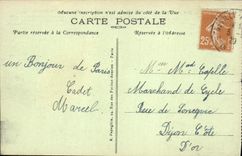 Aucune inscription n'est admise du côté de la Vue
CARTE POSTALE
Partie réservée à la Correspondance
Réservée à l'Adresse
un Bonjour de Paris
Cadet
Marcel
25
Mme Capelle
Marchand de Cycle
Rue de
Dijon Côte
d'Or